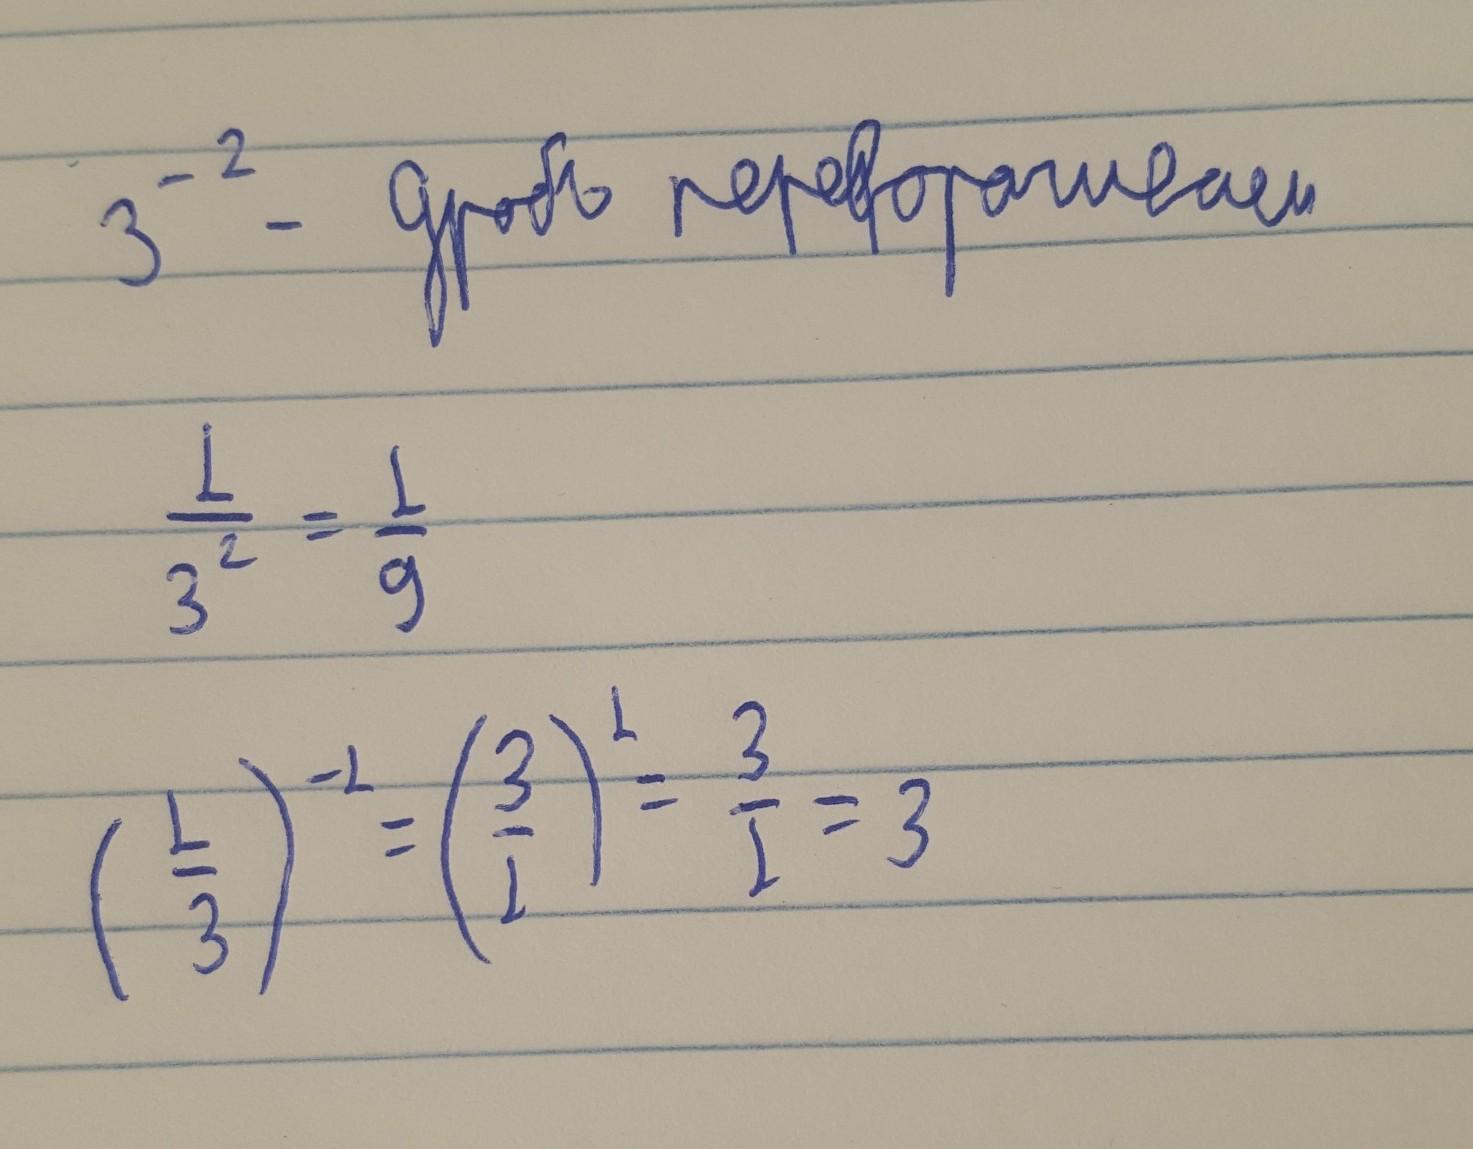 3⁻² - дробь переворачиваем
1/3² = 1/9
(1/3)⁻¹ = (3/1)¹ = 3/1 = 3